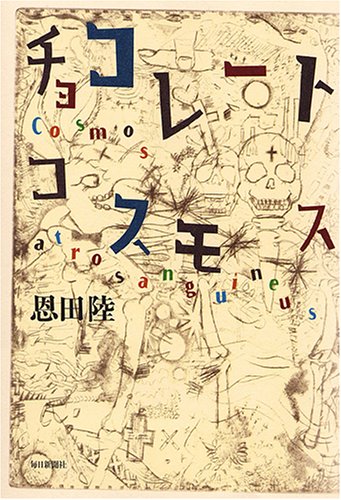 チョコレート
Cosmos
コスモス
atrosanguineus
恩田陸
毎日新聞社